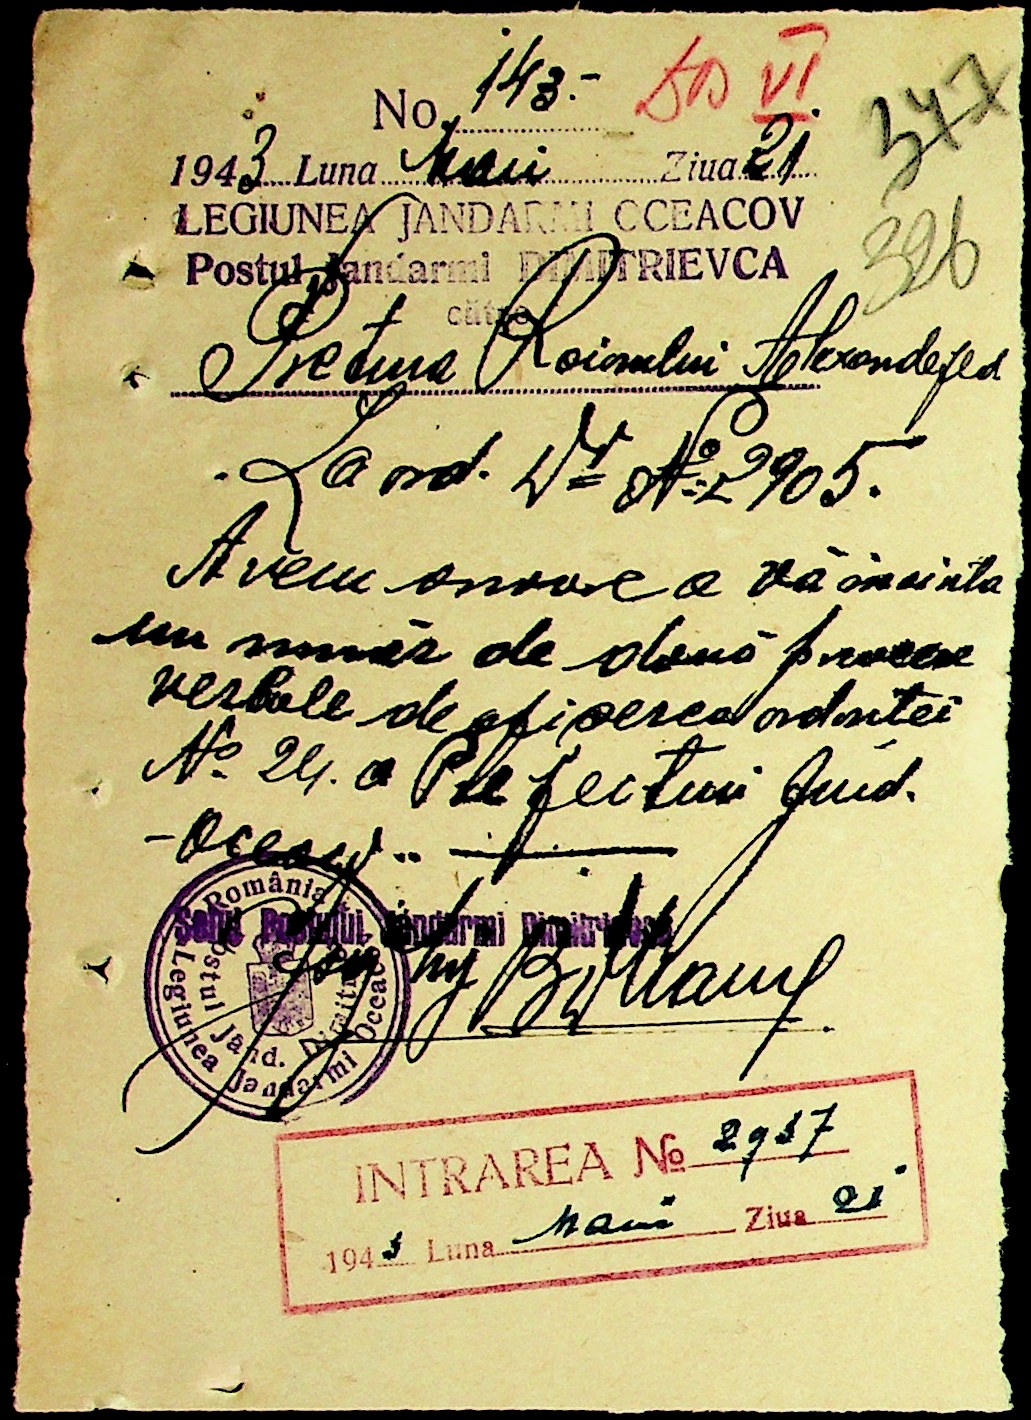 No. 143.-
DOS VI
347
326
1943 Luna Maiu Ziua 21
LEGIUNEA JANDARMI OCEACOV
Postul Jandarmi DIMITRIEVCA
către
Pretura Raionului Alexandefed
La ord. Dv No. 2905.
Avem onoare a vă înainta
un număr de două procese
verbale de afișerea ordontei
No. 24. a Prefecturii Jud.
-Oceacov..
Șeful Postului Jandarmi Dimitrievca
România
Postul Jand. Dimitrievca
Legiunea Jandarmi Oceacov
INTRAREA No 2937
1943 Luna Maiu Ziua 21